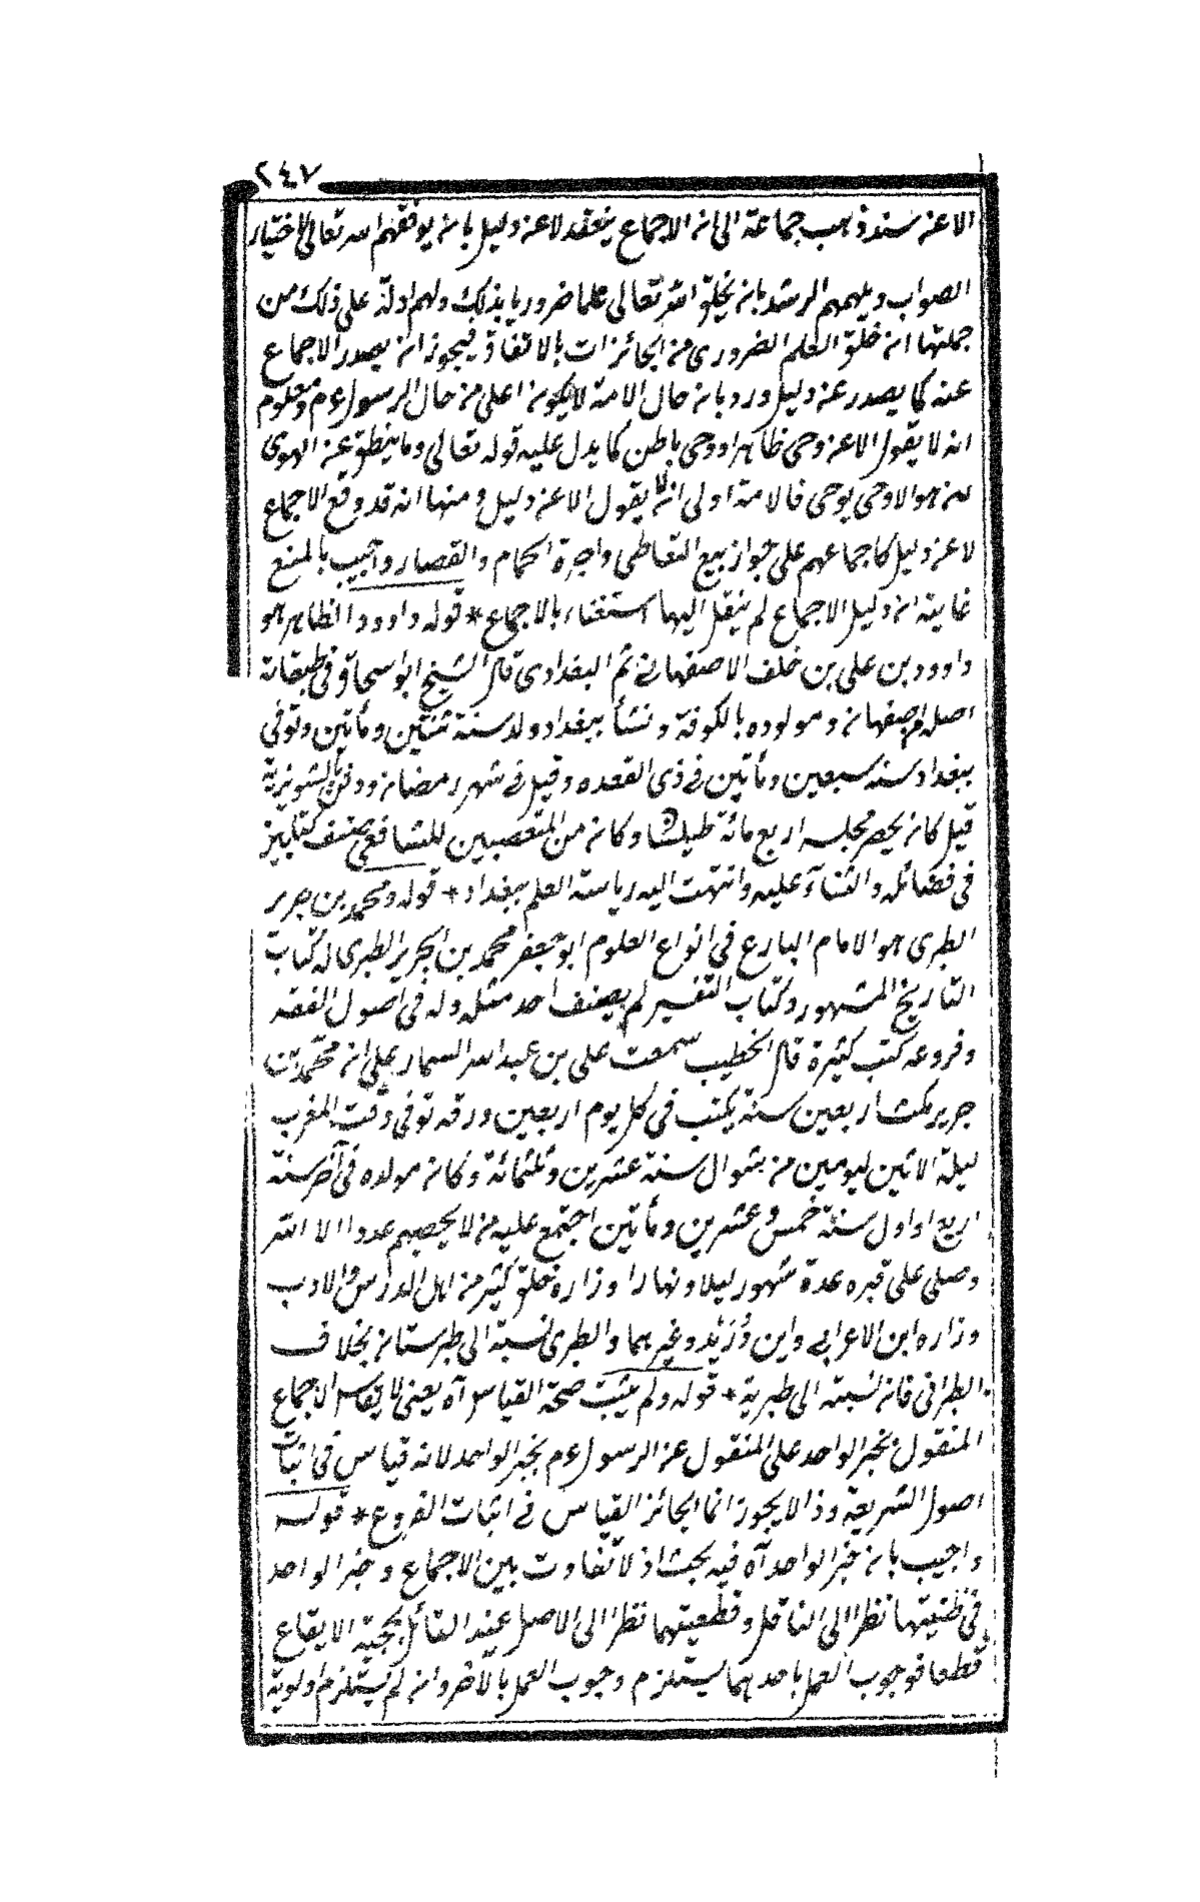 ٢٤٧
الا عن سند ذهب جماعة الى ان الاجماع ينعقد لا عن دليل بان يوفقهم الله تعالى لاختيار
الصواب ويلهمهم الرشد بان يخلق الله تعالى علما ضروريا بذلك ولهم ادلة على ذلك من
جملتها ان خلق العلم الضرورى من الجائزات بالاتفاق فيجوز ان يصدر الاجماع
عنه كما يصدر عن دليل ورد بان حال الامة لا يكون اعلى من حال الرسول ءم ومعلوم
انه لا يقول الا عن وحى ظاهر او وحى باطن كما يدل عليه قوله تعالى وما ينطق عن الهوى
ان هو الا وحى يوحى فالامة اولى ان لا يقول الا عن دليل ومنها انه قد وقع الاجماع
لا عن دليل كاجماعهم على جواز بيع التعاطى واجرة الحمام والقصار واجيب بالمنع
غايته ان دليل الاجماع لم ينقل اليها استغناء بالاجماع * قوله داوود الظاهر هو
داوود بن على بن خلف الاصفهانى ثم البغدادى قال الشيخ ابو اسحاق فى طبقاته
اصله من اصفهان ومولوده بالكوفة ونشأ ببغداد ولد سنة ثنتين ومأتين وتوفى
ببغداد سنه سبعين ومأتين فى ذى القعده وقيل فى شهر رمضان ودفن بالشونيزية
قيل كان يحصر مجلسه اربع مائة طيلسا وكان من المتعصبين للشافعى صنف كتابين
فى فضائله والثناء عليه وانتهت اليه رياسة العلم ببغداد * قوله ومحمد بن جرير
الطبرى هو الامام البارع فى انواع العلوم ابو جعفر محمد بن الجرير الطبرى له كتاب
التاريخ المشهور وكتاب التفسير لم يصنف احد مثله وله فى اصول الفقه
وفروعه كتب كثيرة قال الخطيب سمعت على بن عبدالله السمار على ان محمد بن
جرير مكث اربعين سنة يكتب فى كل يوم اربعين ورقه توفى وقت المغرب
ليلة الاثنين ليومين من شوال سنة عشرين وثلثمائة وكان مولده فى آخر سنة
اربع او اول سنة خمس وعشرين ومأتين اجتمع عليه من لا يحصيهم عددا الا الله
وصلى على قبره عدة شهور ليلا ونهارا وزاره خلق كثير من اهل الدرس والادب
وزاره ابن الاعرابى وابن دريد وغيرهما والطبرى نسبة الى طبرستان بخلاف
الطبرانى فان نسبته الى طبرية * قوله ولم يثبت صحة القياس آه يعنى لا يقاس الاجماع
المنقول بخبر الواحد على المنقول عن الرسول ءم بخبر الواحد لانه قياس فى اثبات
اصول الشريعة وذا لا يجوز انما الجائز القياس فى اثبات الفروع * قوله
واجيب بان خبر الواحد آه فيه بحث اذ لا تفاوت بين الاجماع وخبر الواحد
فى ظنيتها نظرا الى الناقل وقطعيتهما نظرا الى الاصل عند القائل بحجية الايقاع
قطعا فوجوب العمل باحدهما يستلزم وجوب العمل بالاخر وان لم يستلزم اولوية